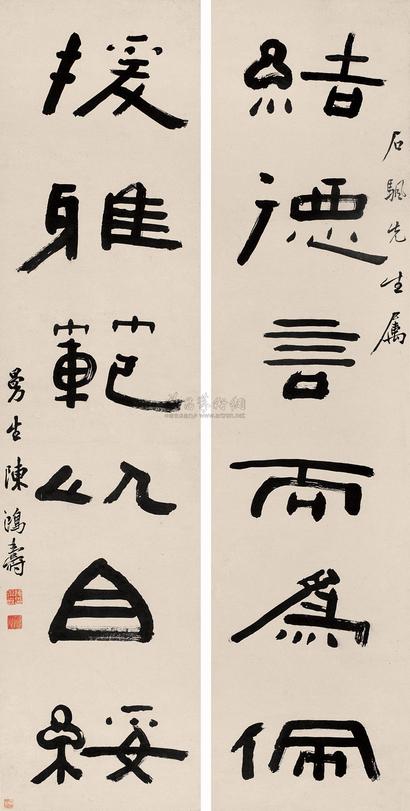 石颿先生属
結德言而為佩
援雅範以自綏
曼生陳鴻壽